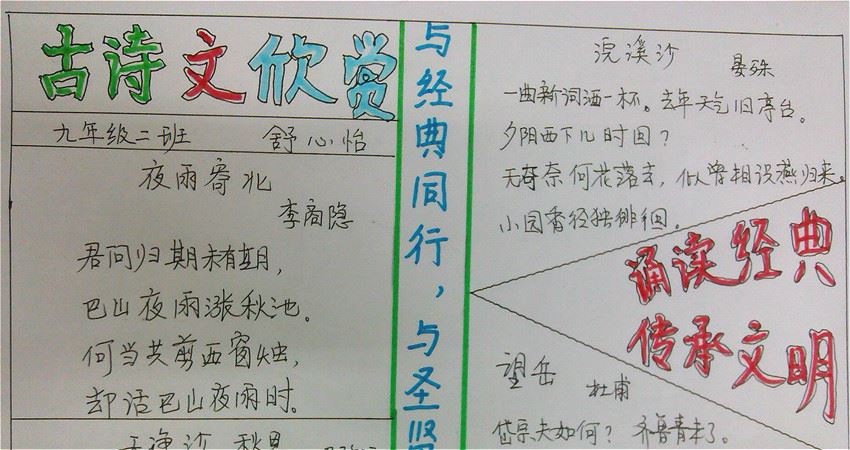 古诗文欣赏
九年级二班 舒心怡
夜雨寄北
李商隐
君问归期未有期，
巴山夜雨涨秋池。
何当共剪西窗烛，
却话巴山夜雨时。
天净沙 秋
与经典同行，与圣贤
浣溪沙 晏殊
一曲新词洒一杯。去年天气旧亭台。
夕阳西下几时回？
无奇奈何花落去，似曾相识燕归来。
小园香径独徘徊。
诵读经典
传承文明
望岳 杜甫
岱宗夫如何？齐鲁青未了。